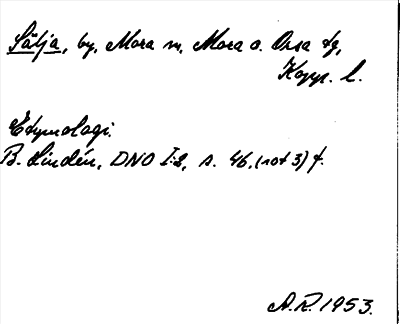 Sätja, by, Mora sn, Mora o. Orsa tg,
Kopp. l.
Etymologi.
B. Lindén, DNO I:2, s. 46, (not 3) f.
A.R. 1953.